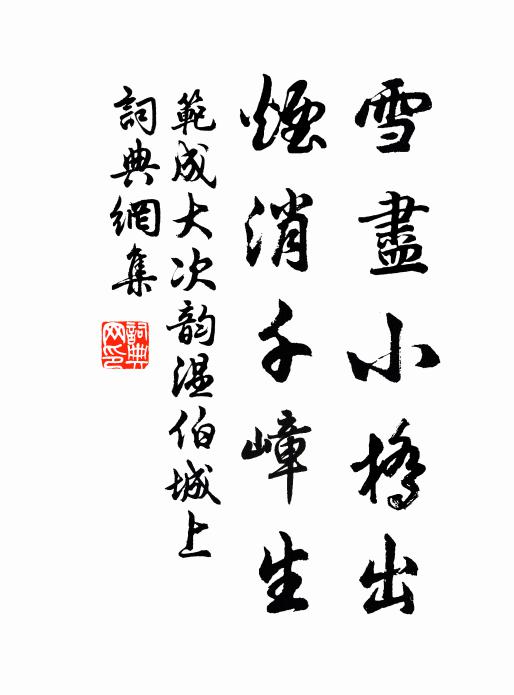 雪盡小橋出
煙消千嶂生
範成大次韵溫伯城上
詞典網集
詞典網印